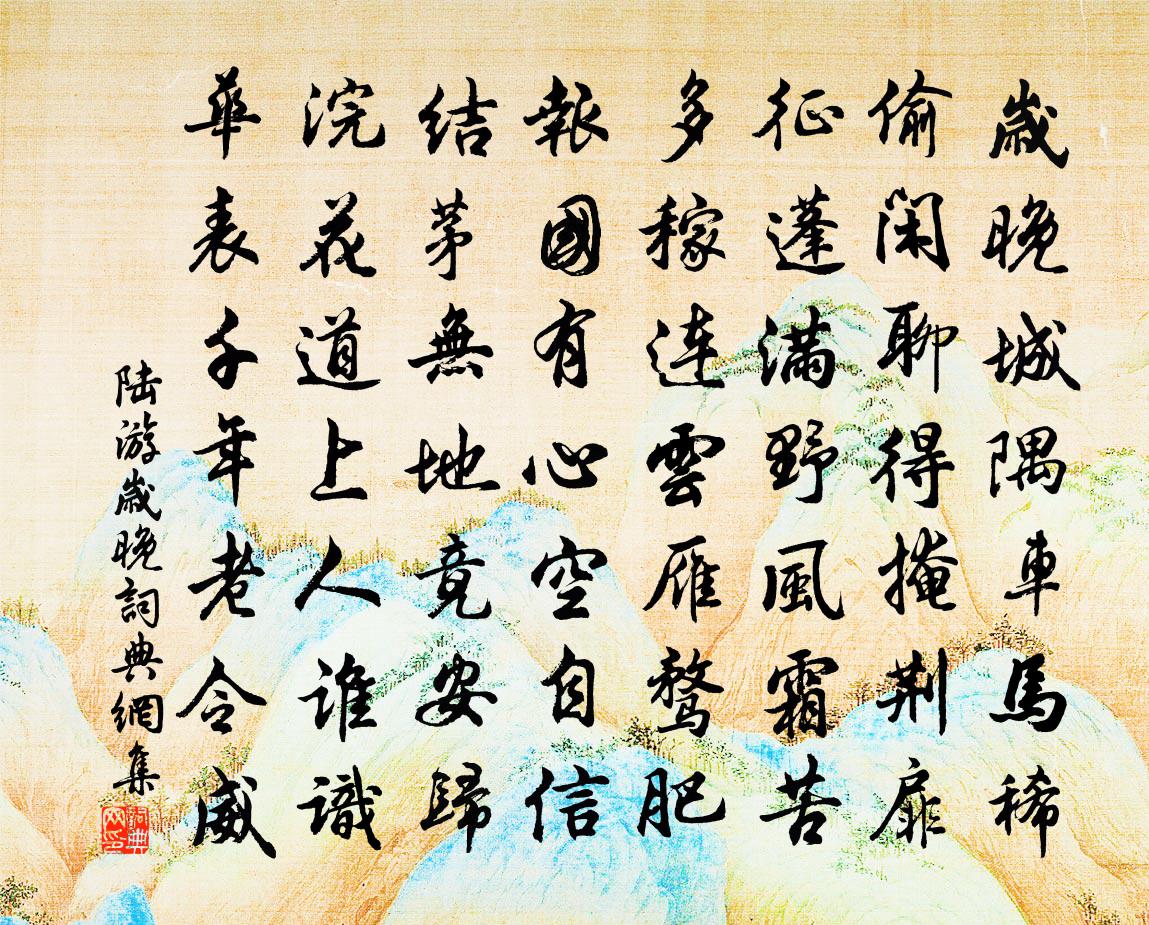 歲晚城隅車馬稀
偷閑聊得掩荆扉
征蓬滿野風霜苦
多稼連雲雁鶩肥
報國有心空自信
結茅無地竟安歸
浣花道上人誰識
華表千年老令威
陆游歲晚詞典網集
詞典網印